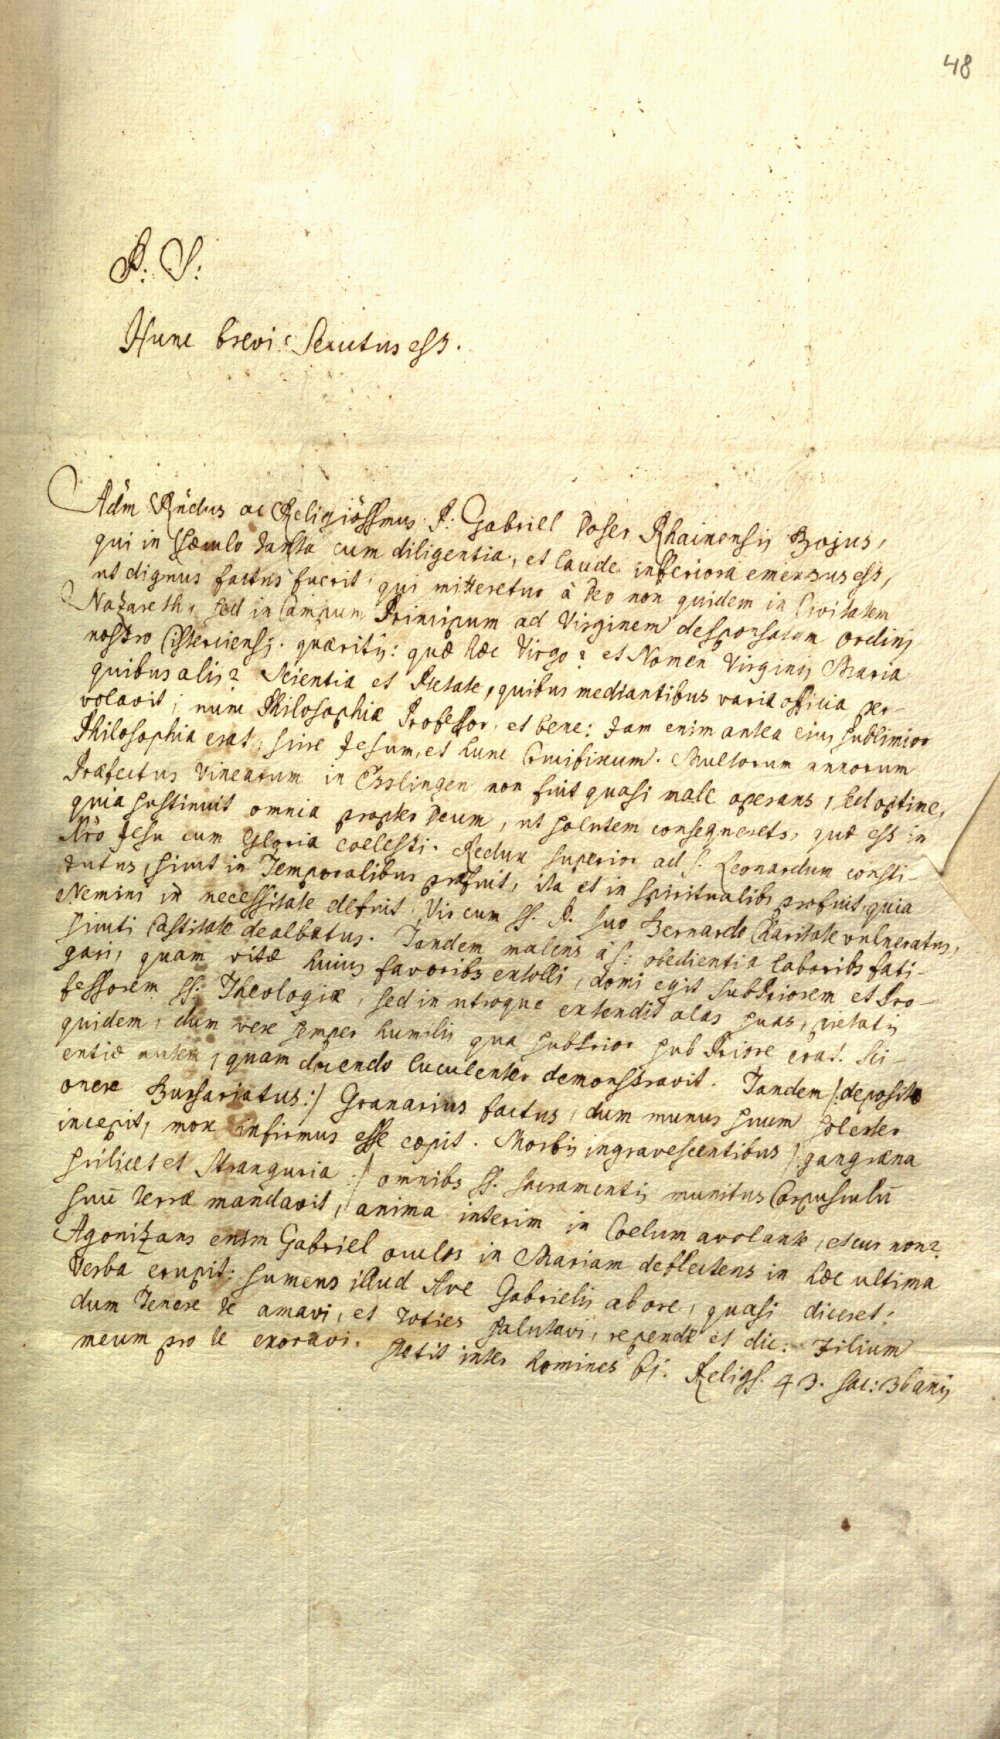 48
P: S:
Hunc brevi secutus est.
Adm̃ Rndus ac Religiosissmus P: Gabriel Poser Rhainensis Bojus,
qui in sæculo tanta cum diligentia, et laude inferiora emensus est,
ut dignus factus fuerit, qui mitteretur à Deo non quidem in Civitatem
Nazareth, sed in Campum Principum ad Virginem desponsatam ordinis
nostro Cisterciensi. quæritis: quæ hæc Virgo? et Nomen Virginis Maria
quibus alis? Scientia et Pietate, quibus mediantibus varia officia per-
volavit; nunc Philosophiæ Professor, et bene: Jam enim antea eius sublimior
Philosophia erat, scire Jesum, et hunc Crucifixum. Multorum annorum
Præfectus Vinearum in Esslingen non fuit quasi male operans, sed optime,
quia sustinuit omnia propter Deum, ut salutem consequerets, quæ est in
Xro Jesu cum Gloria coelesti. Redux Superior ad S: Leonardum consti-
tutus, sicut in Temporalibus præfuit, ita et in spiritualibs profuit, quia
Nemini in necessitate defuit, Vir cum SS. P. suo Bernardo Charitate vulneratus,
sicuti Castitate dealbatus. Tandem malens à S: obedientia laboribs fati-
gari, quam vitæ huius favoribs extolli, domi egit SubPriorem et Pro-
fessorem SS: Theologiæ, sed in utroque extendit alas suas, pietatis
quidem, dum vere semper humilis qua subPrior sub Priore erat. Sci-
entiæ autem, quam docendo luculenter demonstravit. Tandem /: deposito
onere Bursariatus :/ Granarius factus, dum munus suum solerter
incepit, mox infirmus esse cœpit. Morbis ingravescentibus /: gangræna
scilicet et Stranguria :/ omnibs SS. Sacramentis munitus Corpusculū
suū terræ mandavit, anima interim in Coelum avolante, et cur non?
Agonizans enim Gabriel oculos in Mariam deflectens in hæc ultima
Verba erupit, sumens illud Ave Gabrielis ab ore, quasi diceret:
dum tenere te amavi, et toties salutavi, repende et dic: Filium
meum pro te exoravi. Stetit inter homines 61. Religs. 43. Sac: 36 anñis